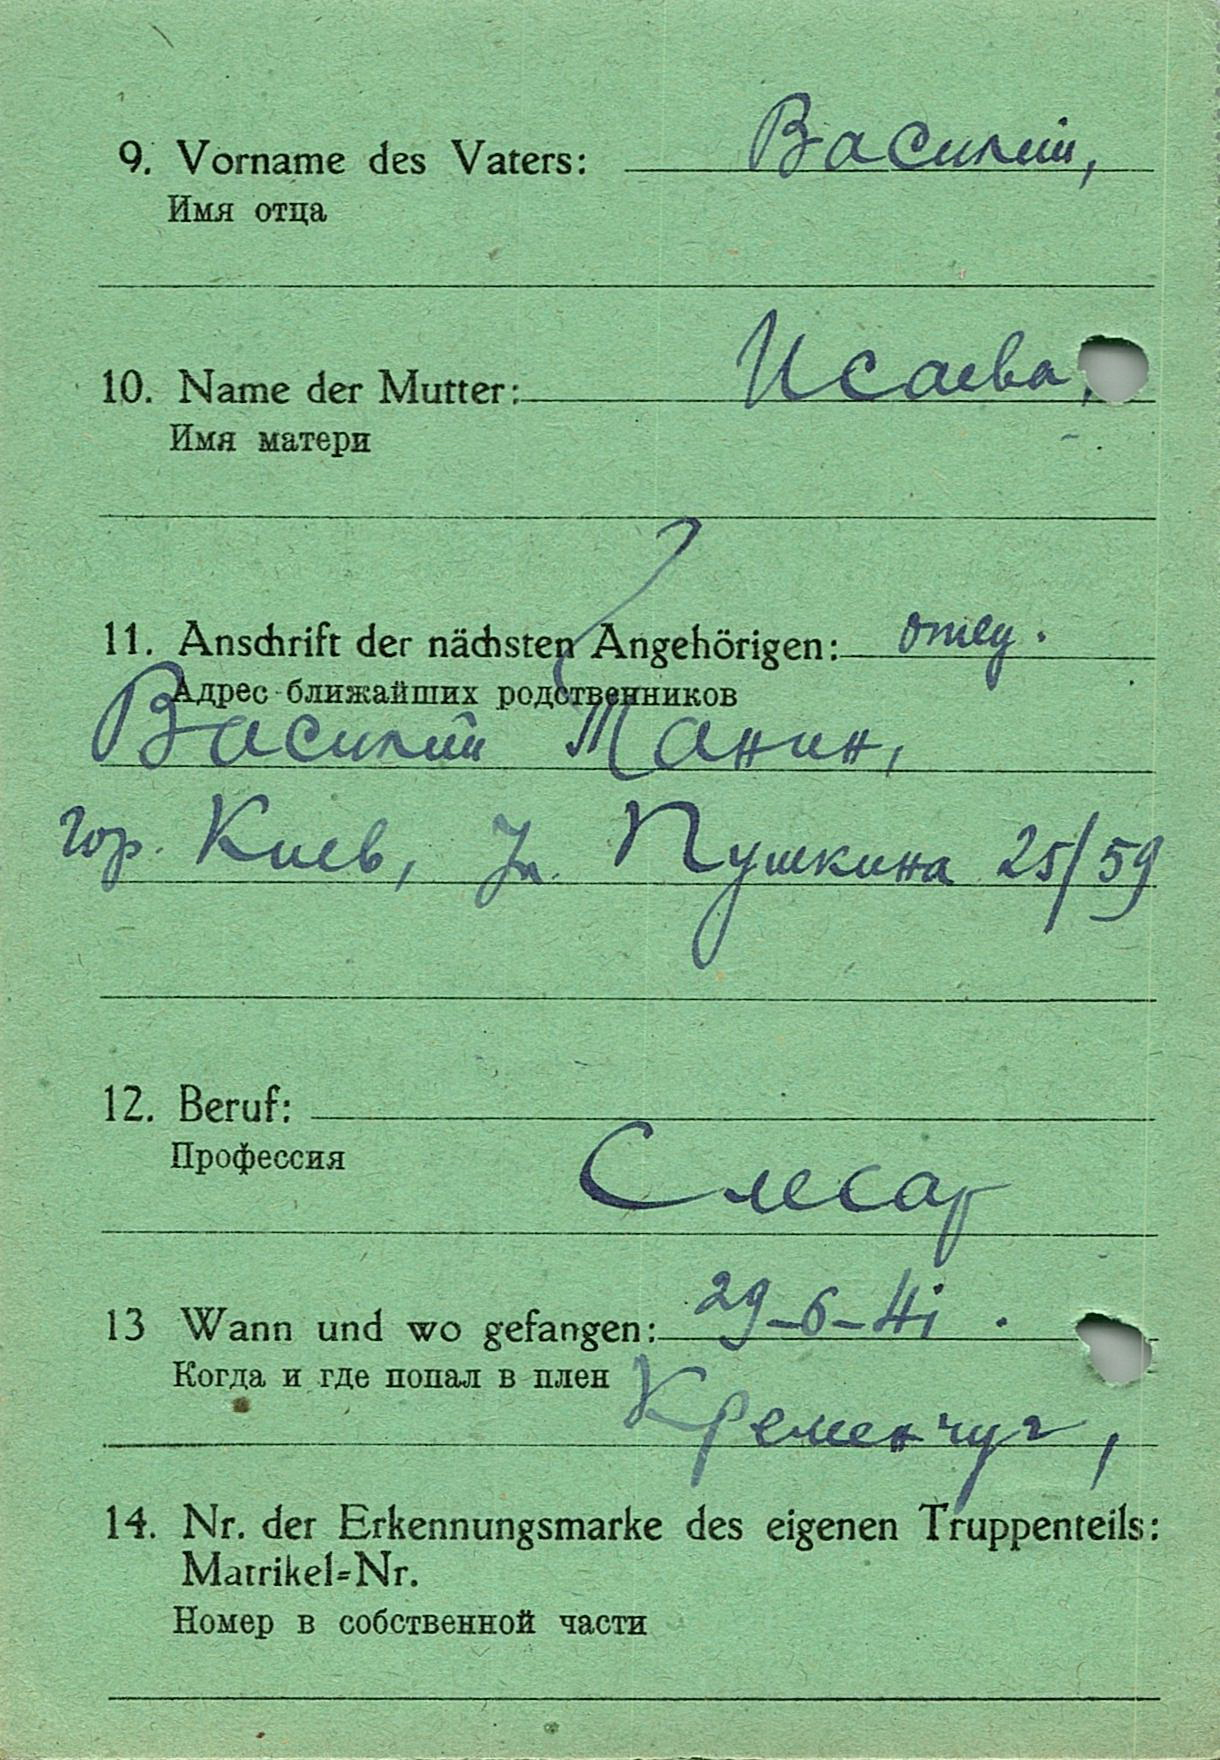 9. Vorname des Vaters: Василий,
Имя отца
10. Name der Mutter: Исаева,
Имя матери
11. Anschrift der nächsten Angehörigen: отец.
Адрес ближайших родственников
Василий Танин,
гор. Киев, Ул. Пушкина 25/59
12. Beruf:
Профессия
Слесар
13 Wann und wo gefangen: 29-6-41.
Когда и где попал в плен
Кременчуг,
14. Nr. der Erkennungsmarke des eigenen Truppenteils:
Matrikel-Nr.
Номер в собственной части